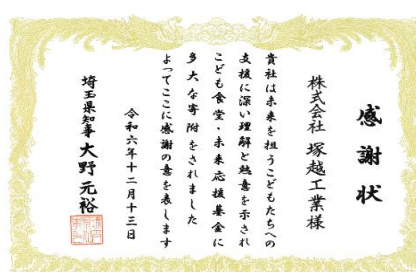 感謝状
株式会社 塚越工業様
貴社は未来を担うこどもたちへの
支援に深い理解と熱意を示され
こども食堂・未来応援基金に
多大な寄附をされました
よってここに感謝の意を表します
令和六年十二月十三日
埼玉県知事 大野元裕